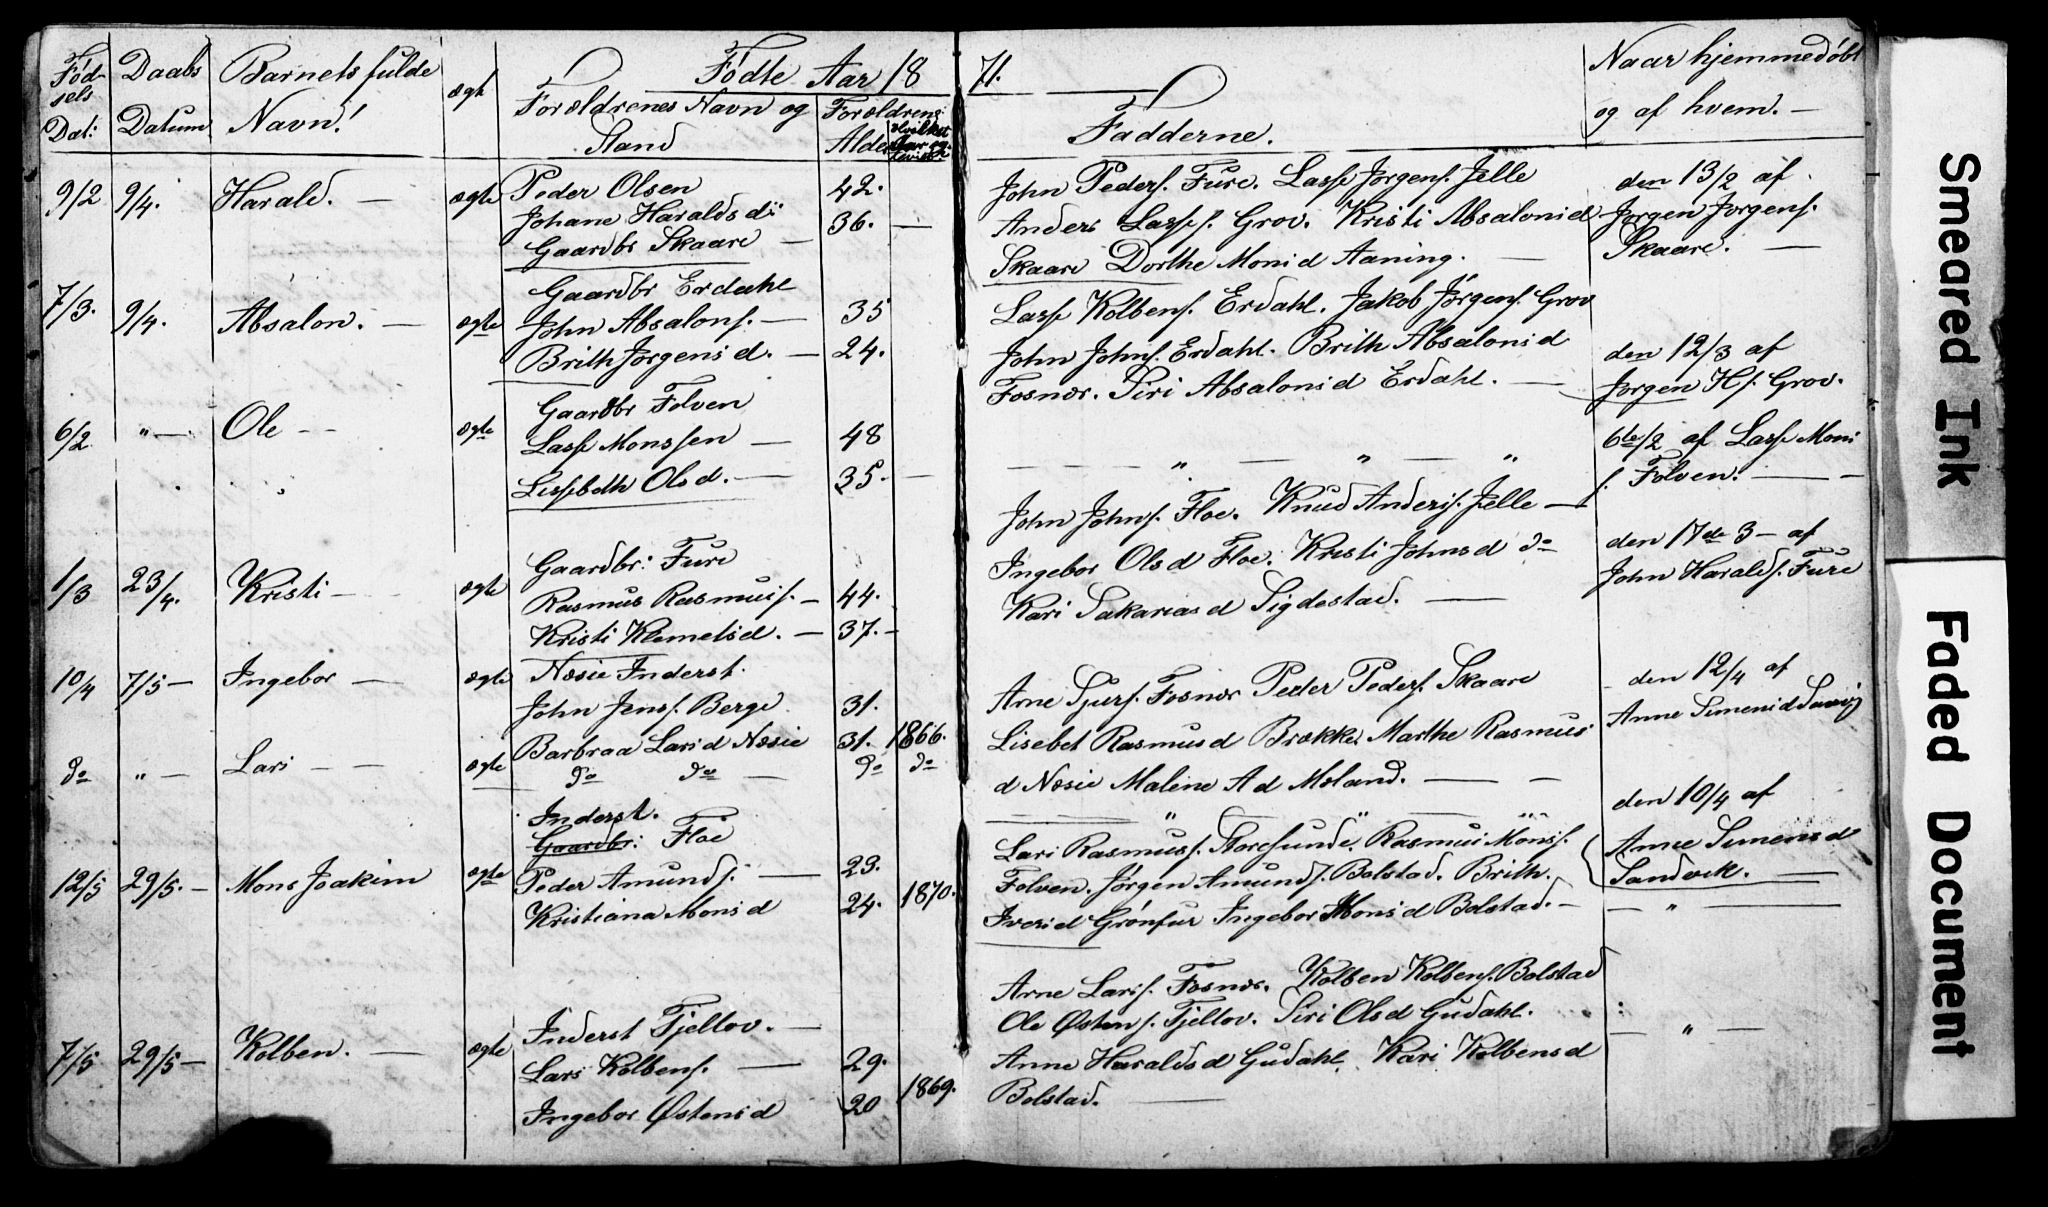 Fødte Aar 18 71.
Fødsels Dat:
Daabs Datum
Barnets fulde Navn!
ægt
Forældrenes Navn og Stand
Forældrens Alder
Fadderne.
Naar hjemmedøbt og af hvem. —
9/2 9/4. Harald. — ægte Peder Olsen 42.
Johane Haraldsd: 36. —
Gaardbr Skaare —
John Peders. Fure. Lasse Jørgens. Jelle
Anders Lasses. Grov. Kristi Absalonsd
Skaare Dorthe Monsd Aaning. —
den 13/2 af
Jørgen Jørgens.
Skaare. —
7/3. 9/4. Absalon. — ægte Gaardbr Erdahl
John Absalons. — 35
Brith Jørgensd. — 24.
Lasse Kolbens. Erdahl. Jakob Jørgens. Grov
John Johns. Erdahl. Brith Absalonsd
Fosnæs. Siri Absalonsd Erdahl. —
den 12/3 af
Jørgen Hs. Grov.
6/2 " — Ole — ægte Gaardbr Folven
Lasse Monssen — 48
Lissebeth Olsd. — 35. —
— " — " — "
6te/2 af Lasse Mons
s. Folven. —
1/3 23/4. Kristi — ægte Gaardbr: Fure
Rasmus Rasmuss. — 44.
Kristi Klemetsd. — 37. —
John Johns. Floe. Knud Anders. Jelle —
Ingebor Olsd Floe. Kristi Johnsd do
Kari Sakariasd Sigdestad. —
den 17de 3 — af
John Haralds. Fure
10/4 7/5 — Ingebor — ægte Næsie Inderst.
John Jenss. Berge 31.
Barbraa Larsd Næsie 31. 1866.
Arne Sjurs. Fosnæs Peder Peders. Skaare
Lisebet Rasmusd Brække. Marthe Rasmus
d Næsie Malene Ad Moland. —
den 12/4 af
Anne Simensd
do " — Lars — ægte do do — do do
" — " — "
den 10/4 af
Anne Simensd
Sandvik. —
12/5 29/5. — Mons Joakim ægte Inderst.
Gaardbr: Floe
Peder Amunds. — 23.
Kristiana Monsd 24. 1870.
Lars Rasmuss. Storesunde. Rasmus Monss.
Folven. Jørgen Amunds. Bolstad. Brith.
Iversd Grønfur Ingebor Monsd Bolstad. —
— " —
7/5 29/5 — Kolben. — ægte Inderst Fjellov. —
Lars Kolbens. — 29.
Ingebor Østensd 20 1869.
Arne Larss. Fosnæs. Kolben Kolbens. Bolstad
Ole Østens. Fjellov. Siri Olsd Gudahl.
Anne Haraldsd Gudahl. Kari Kolbensd
Bolstad. —
— " —
Smeared Ink
Faded Document